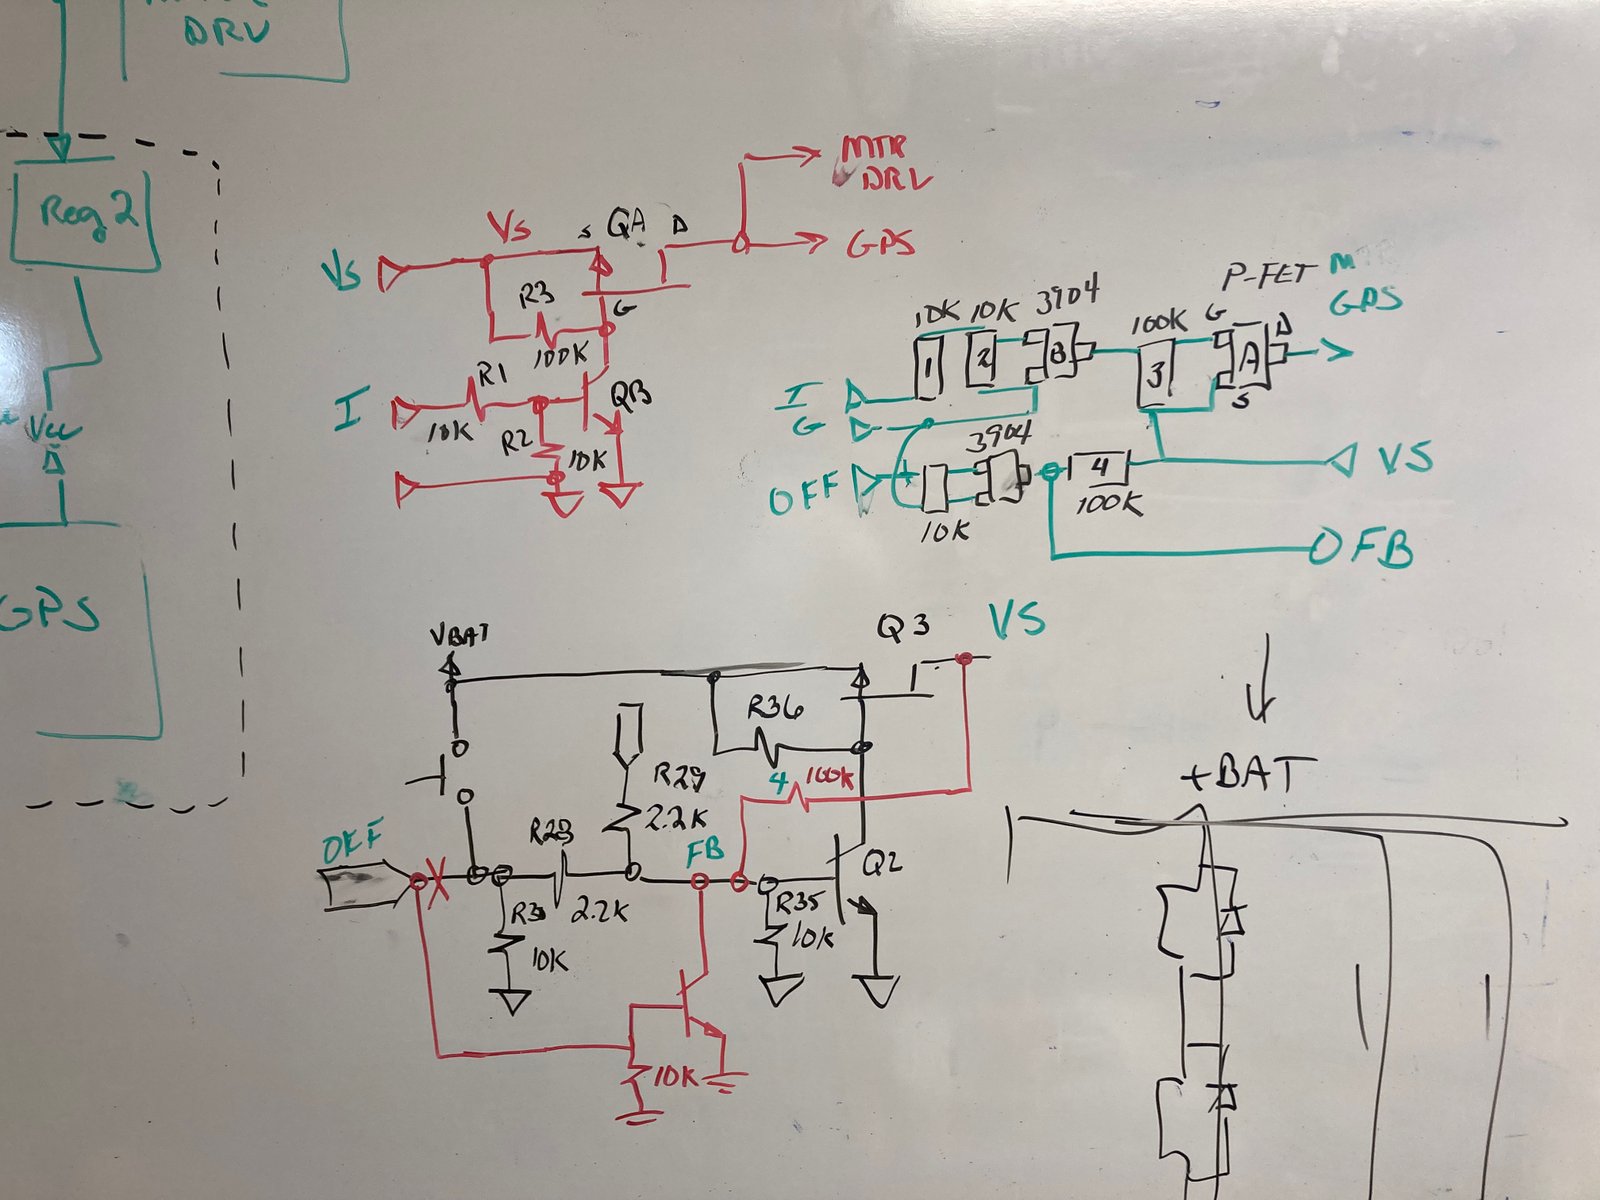 DRV
Reg 2
Vcc
GPS
MTR
DRV
GPS
Vs
Vs
S
QA
D
R3
G
100K
I
R1
10K
QB
R2
10K
P-FET
M
GPS
10K
10K
3904
100K
G
D
1
2
B
3
A
S
I
G
3904
OFF
4
VS
10K
100K
FB
VBAT
Q3
VS
R36
R29
4
100K
2.2K
OFF
R28
FB
Q2
R35
2.2K
10K
10K
10K
+BAT